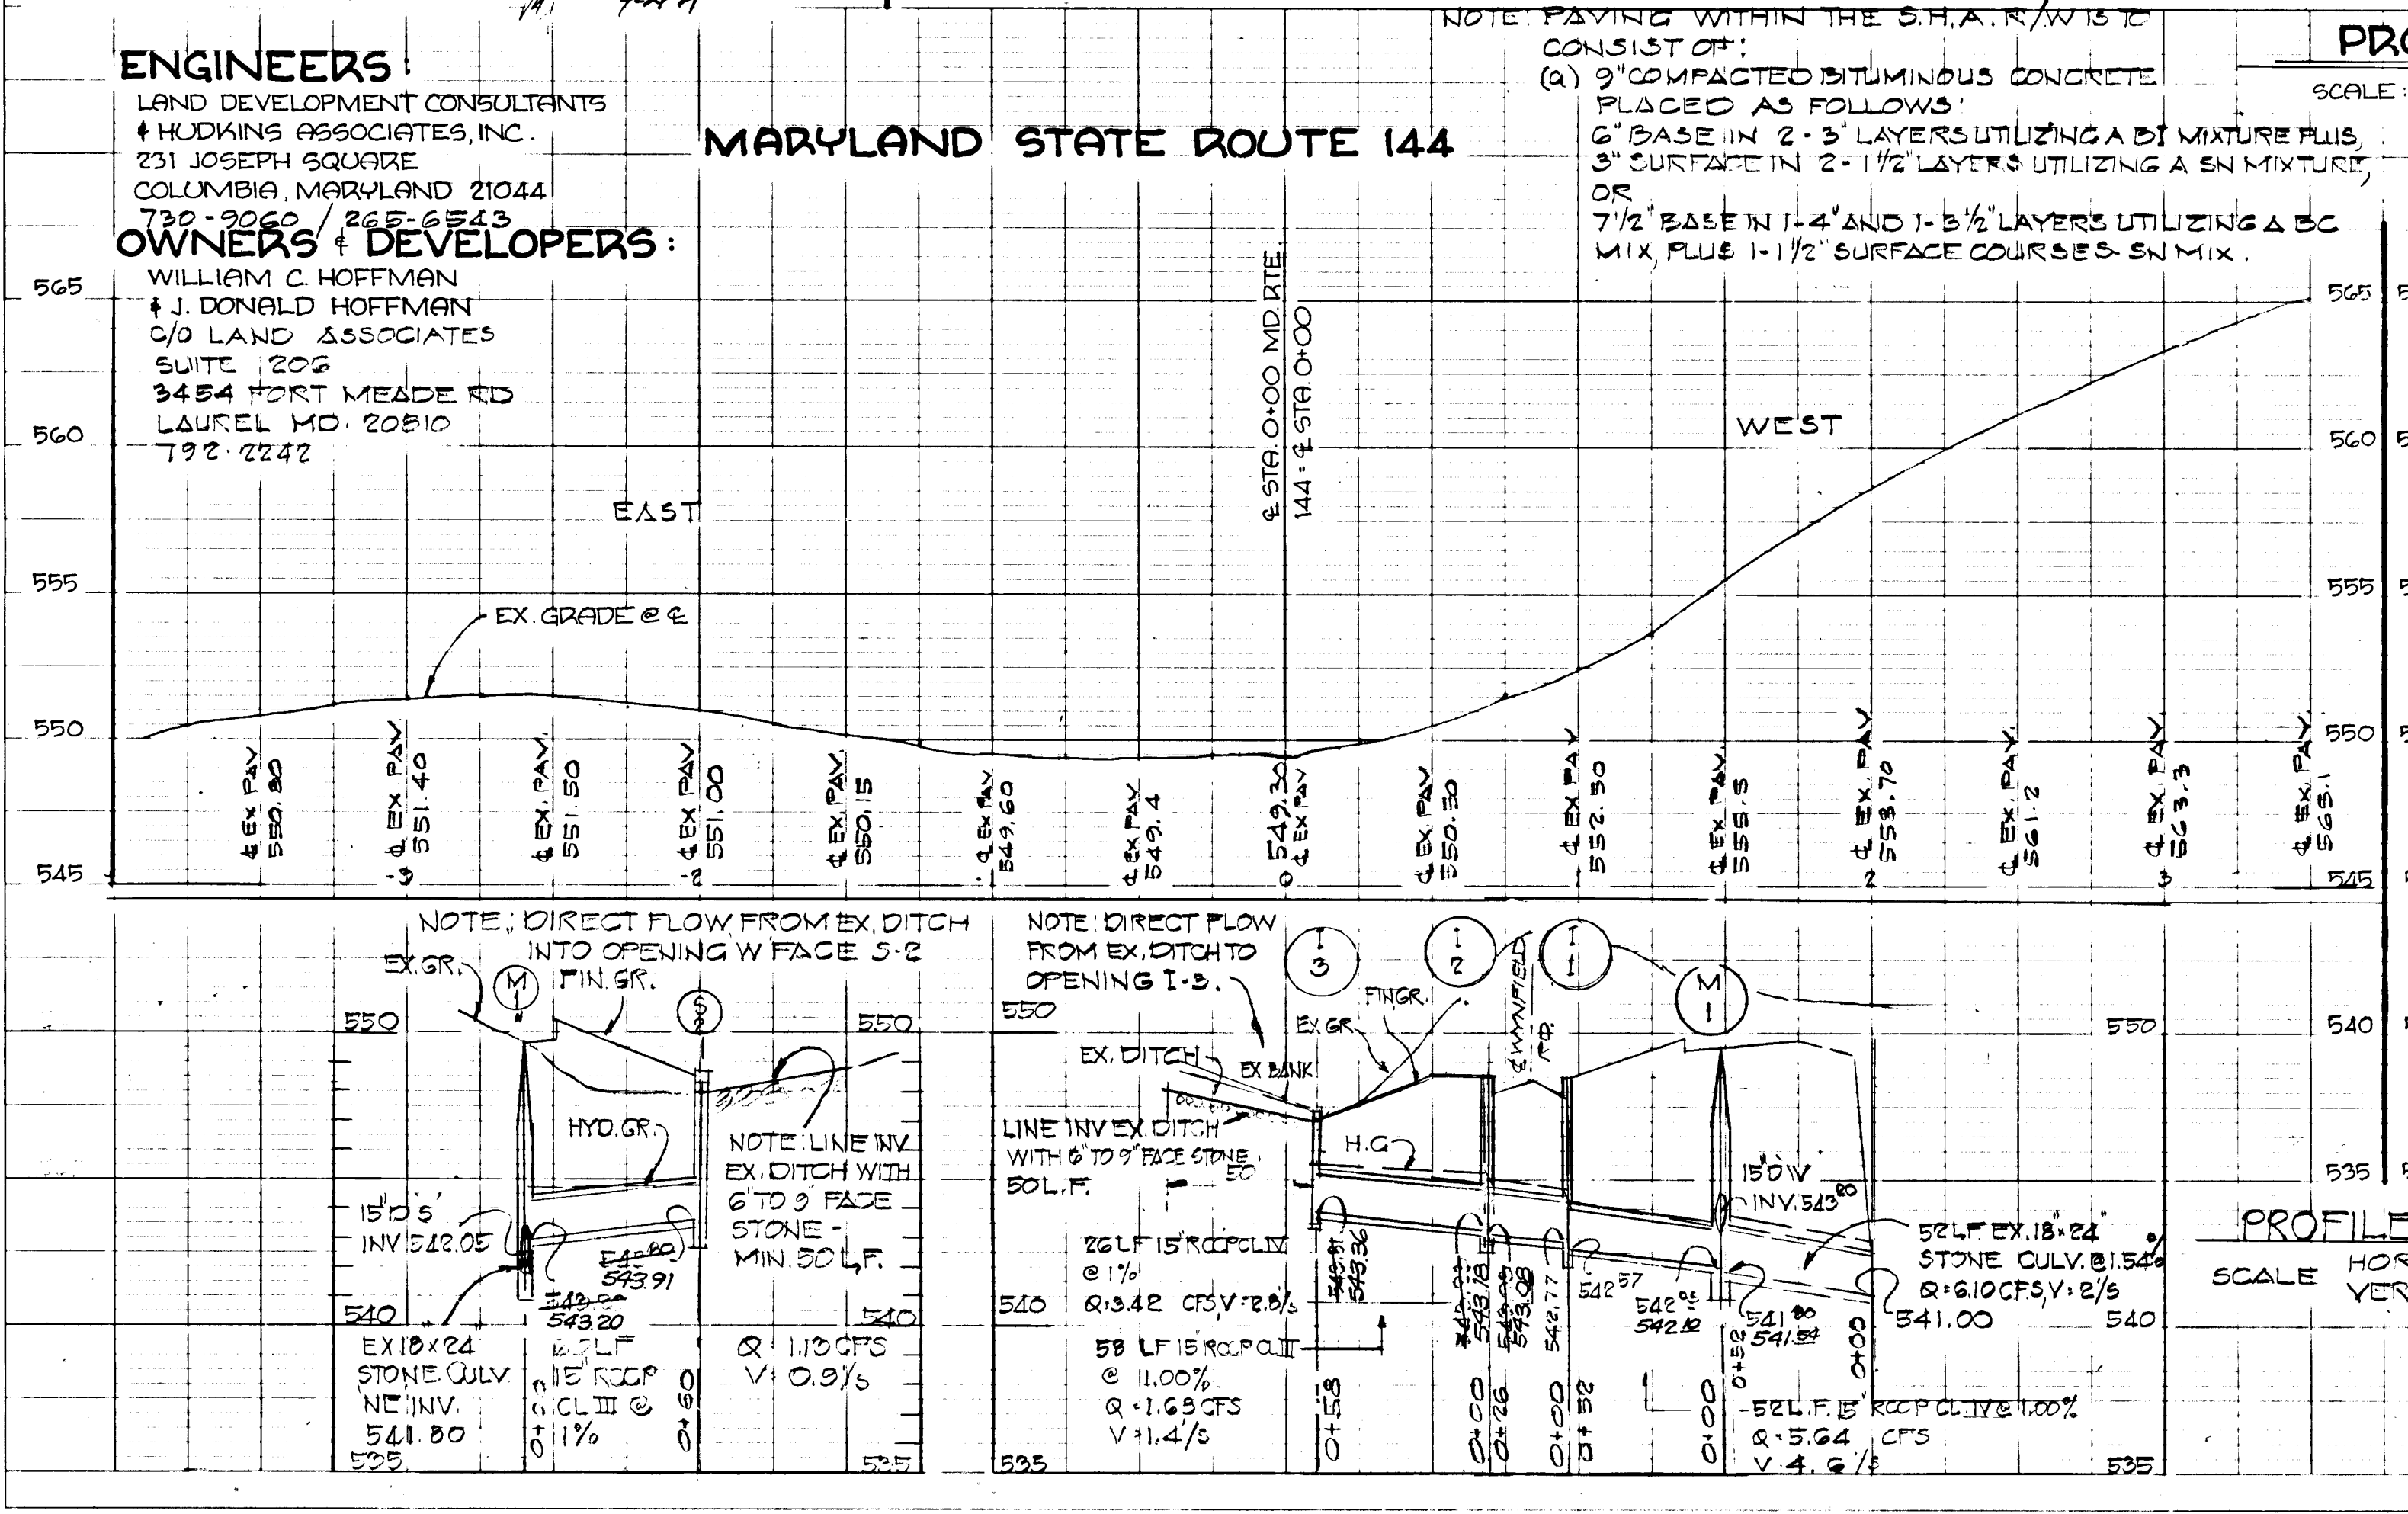 ENGINEERS:
LAND DEVELOPMENT CONSULTANTS
& HUDKINS ASSOCIATES, INC.
231 JOSEPH SQUARE
COLUMBIA, MARYLAND 21044
730-9060 / 265-6543
OWNERS & DEVELOPERS:
WILLIAM C. HOFFMAN
& J. DONALD HOFFMAN
C/O LAND ASSOCIATES
SUITE 206
3454 FORT MEADE RD
LAUREL MD. 20810
792-2242
MARYLAND STATE ROUTE 144
NOTE: PAVING WITHIN THE S.H.A. R/W IS TO
CONSIST OF:
(a) 9" COMPACTED BITUMINOUS CONCRETE
PLACED AS FOLLOWS:
6" BASE IN 2-3" LAYERS UTILIZING A BI MIXTURE PLUS,
3" SURFACE IN 2-1 1/2" LAYERS UTILIZING A SN MIXTURE,
OR
7 1/2" BASE IN 1-4" AND 1-3 1/2" LAYERS UTILIZING A BC
MIX, PLUS 1-1 1/2" SURFACE COURSES SN MIX.
PRO
SCALE:
565
560
555
550
545
565
560
555
550
545
540
535
EAST
WEST
EX. GRADE @ ℄
℄ STA. 0+00 MD. RTE.
144 = ℄ STA. 0+00
℄ EX PAV
550.80
-3 ℄ EX. PAV
551.40
℄ EX. PAV.
551.50
-2 ℄ EX PAV
551.00
℄ EX. PAV.
550.15
℄ EX. PAV.
549.60
℄ EX PAV
549.4
0 549.30
℄ EX PAV
℄ EX PAV
550.50
℄ EX PAV
552.50
℄ EX PAV.
555.5
2 ℄ EX. PAV
558.70
℄ EX. PAV.
561.2
3 ℄ EX. PAV.
563.3
℄ EX. PAV.
565.1
NOTE: DIRECT FLOW FROM EX. DITCH
INTO OPENING W FACE S-2
EX. GR.
FIN. GR.
M
1
S
2
550
550
HYD. GR.
NOTE: LINE INV
EX. DITCH WITH
6" TO 9" FACE
STONE -
MIN. 50 L.F.
15" D 'S'
INV 542.05
543.91
543.20
540
540
EX 18 x 24
STONE CULV.
NE INV.
541.80
LF
15" RCCP
CL III @
1%
Q = 1.13 CFS
V = 0.9'/s
0+60
535
535
NOTE: DIRECT FLOW
FROM EX. DITCH TO
OPENING I-3.
I
3
I
2
I
1
M
1
℄ WYNFIELD
RD.
550
550
EX. DITCH
EX BANK
EX. GR.
FIN GR.
LINE INV EX. DITCH
WITH 6" TO 9" FACE STONE
50 L.F.
50
H.G
26 LF 15" RCCP CL IV
@ 1%
Q = 3.42 CFS, V = 2.8'/s
58 LF 15" RCCP CL III
@ 1.00%
Q = 1.63 CFS
V = 1.4'/s
543.36
543.18
543.08
542.77
542.57
542.05
542.12
541.80
541.54
541.00
15" D 'IV'
INV. 543.80
52 LF EX. 18" x 24"
STONE CULV. @ 1.54%
Q = 6.10 CFS, V = 2'/s
52 L.F. 15" RCCP CL. IV @ 1.00%
Q = 5.64 CFS
V = 4.6'/s
0+58
0+00
0+26
0+00
0+52
0+00
0+52
0+00
540
540
535
535
PROFILE
SCALE
HOR
VER